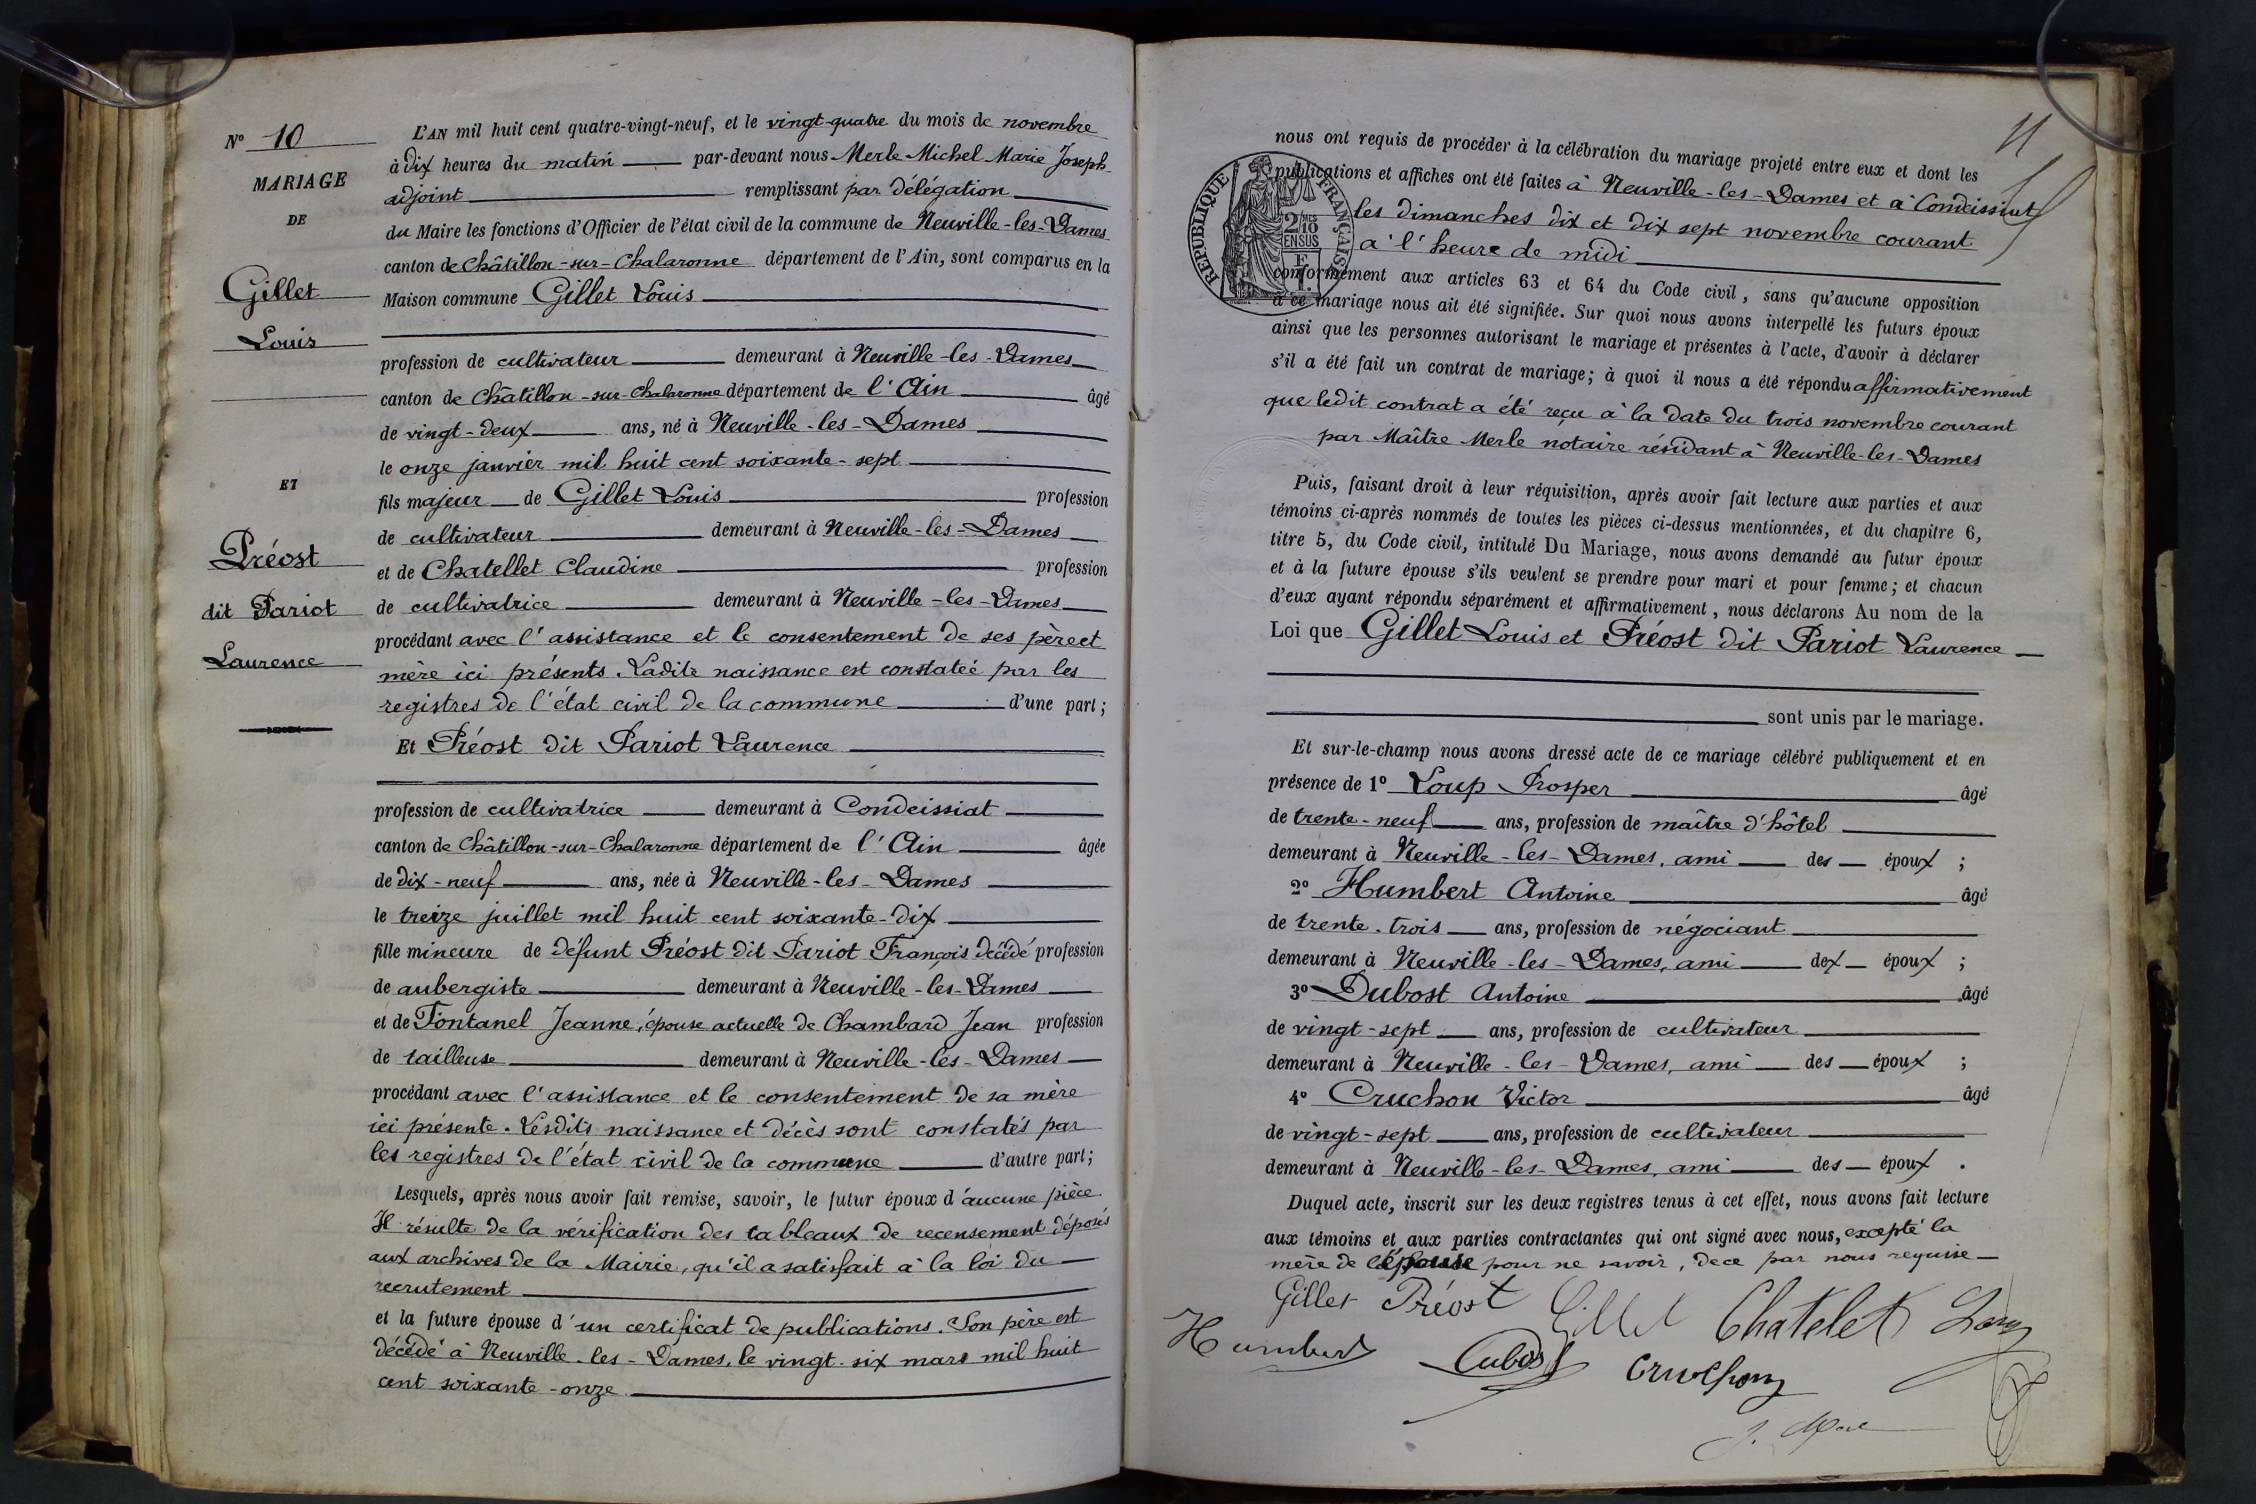 N° 10
MARIAGE
DE
Gillet
Louis
ET
Préost
dit Pariot
Laurence
L'AN mil huit cent quatre-vingt-neuf, et le vingt-quatre du mois de novembre
à dix heures du matin par-devant nous Merle Michel Marie Joseph
adjoint remplissant par délégation
du Maire les fonctions d'Officier de l'état civil de la commune de Neuville-les-Dames
canton de Châtillon-sur-Chalaronne département de l'Ain, sont comparus en la
Maison commune Gillet Louis
profession de cultivateur demeurant à Neuville-les-Dames
canton de Châtillon-sur-Chalaronne département de l'Ain âgé
de vingt-deux ans, né à Neuville-les-Dames
le onze janvier mil huit cent soixante-sept
fils majeur de Gillet Louis profession
de cultivateur demeurant à Neuville-les-Dames
et de Chatellet Claudine profession
de cultivatrice demeurant à Neuville-les-Dames
procédant avec l'assistance et le consentement de ses père et
mère ici présents. Ladite naissance est constateé par les
registres de l'état civil de la commune d'une part;
Et Préost dit Pariot Laurence
profession de cultivatrice demeurant à Condeissiat
canton de Châtillon-sur-Chalaronne département de l'Ain âgée
de dix-neuf ans, née à Neuville-les-Dames
le treize juillet mil huit cent soixante-dix
fille mineure de défunt Préost dit Pariot François décédé profession
de aubergiste demeurant à Neuville-les-Dames
et de Fontanel Jeanne, épouse actuelle de Chambard Jean profession
de tailleuse demeurant à Neuville-les-Dames
procédant avec l'assistance et le consentement de sa mère
ici présente. Lesdits naissance et décès sont constatés par
les registres de l'état civil de la commune d'autre part;
Lesquels, après nous avoir fait remise, savoir, le futur époux d'aucune pièce.
Il résulte de la vérification des tableaux de recensement déposés
aux archives de la Mairie, qu'il a satisfait à la loi du
recrutement
et la future épouse d'un certificat de publications. Son père est
décédé à Neuville-les-Dames, le vingt-six mars mil huit
cent soixante-onze
11
nous ont requis de procéder à la célébration du mariage projeté entre eux et dont les
publications et affiches ont été faites à Neuville-les-Dames et à Condeissiat
les dimanches dix et dix sept novembre courant
à l'heure de midi
RÉPUBLIQUE FRANÇAISE
2/10 EN SUS
conformément aux articles 63 et 64 du Code civil, sans qu'aucune opposition
à ce mariage nous ait été signifiée. Sur quoi nous avons interpellé les futurs époux
ainsi que les personnes autorisant le mariage et présentes à l'acte, d'avoir à déclarer
s'il a été fait un contrat de mariage; à quoi il nous a été répondu affirmativement
que ledit contrat a été reçu à la date du trois novembre courant
par Maître Merle notaire résidant à Neuville-les-Dames
Puis, faisant droit à leur réquisition, après avoir fait lecture aux parties et aux
témoins ci-après nommés de toutes les pièces ci-dessus mentionnées, et du chapitre 6,
titre 5, du Code civil, intitulé Du Mariage, nous avons demandé au futur époux
et à la future épouse s'ils veulent se prendre pour mari et pour femme; et chacun
d'eux ayant répondu séparément et affirmativement, nous déclarons Au nom de la
Loi que Gillet Louis et Préost dit Pariot Laurence
sont unis par le mariage.
Et sur-le-champ nous avons dressé acte de ce mariage célébré publiquement et en
présence de 1° Loup Prosper âgé
de trente-neuf ans, profession de maître d'hôtel
demeurant à Neuville-les-Dames, ami des époux ;
2° Humbert Antoine âgé
de trente-trois ans, profession de négociant
demeurant à Neuville-les-Dames, ami dex époux ;
3° Dubost Antoine âgé
de vingt-sept ans, profession de cultivateur
demeurant à Neuville-les-Dames, ami des époux ;
4° Cruchon Victor âgé
de vingt-sept ans, profession de cultivateur
demeurant à Neuville-les-Dames, ami des époux .
Duquel acte, inscrit sur les deux registres tenus à cet effet, nous avons fait lecture
aux témoins et aux parties contractantes qui ont signé avec nous, excepté la
mère de l'épouse pour ne savoir, de ce par nous requise
Gillet Préost Gillet Chatelet
Humbert Dubost Cruchon